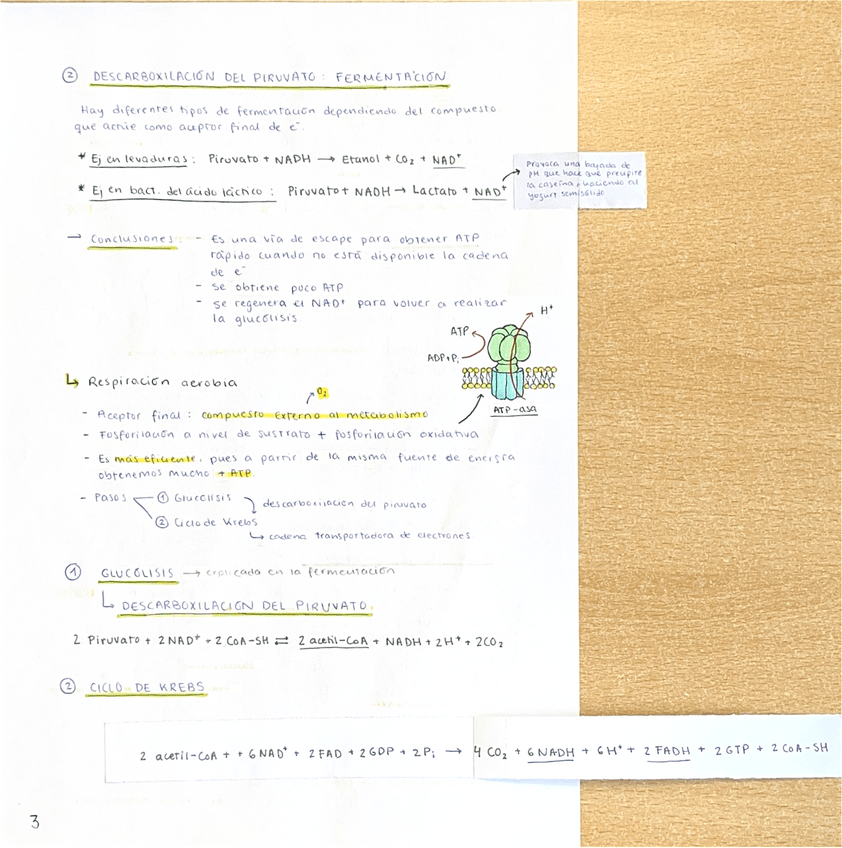 ② DESCARBOXILACIÓN DEL PIRUVATO : FERMENTACIÓN
Hay diferentes tipos de fermentación dependiendo del compuesto
que actúe como aceptor final de e⁻.
* Ej en levaduras : Piruvato + NADH → Etanol + CO₂ + NAD⁺
* Ej en bact. del ácido láctico : Piruvato + NADH → Lactato + NAD⁺
Provoca una bajada de
PH que hace que precipite
la caseína, haciendo al
yogurt semisólido
→ Conclusiones : - Es una vía de escape para obtener ATP
rápido cuando no está disponible la cadena
de e⁻
- se obtiene poco ATP
- se regenera el NAD⁺ para volver a realizar
la glucólisis.
H⁺
ATP
ADP+Pᵢ
ATP-asa
↳ Respiración aerobia
O₂
- Aceptor final : compuesto externo al metabolismo
- Fosforilación a nivel de sustrato + fosforilación oxidativa
- Es más eficiente, pues a partir de la misma fuente de energía
obtenemos mucho + ATP.
- Pasos ① Glucólisis
descarboxilación del piruvato
② Ciclo de Krebs
↳ cadena transportadora de electrones
① GLUCÓLISIS → explicada en la fermentación
↳ DESCARBOXILACIÓN DEL PIRUVATO.
2 Piruvato + 2NAD⁺ + 2 CoA-SH ⇄ 2 acetil-CoA + NADH + 2H⁺ + 2CO₂
② CICLO DE KREBS
2 acetil-CoA + + 6NAD⁺ + 2FAD + 2GDP + 2Pᵢ → 4 CO₂ + 6 NADH + 6H⁺ + 2 FADH + 2GTP + 2 CoA-SH
3